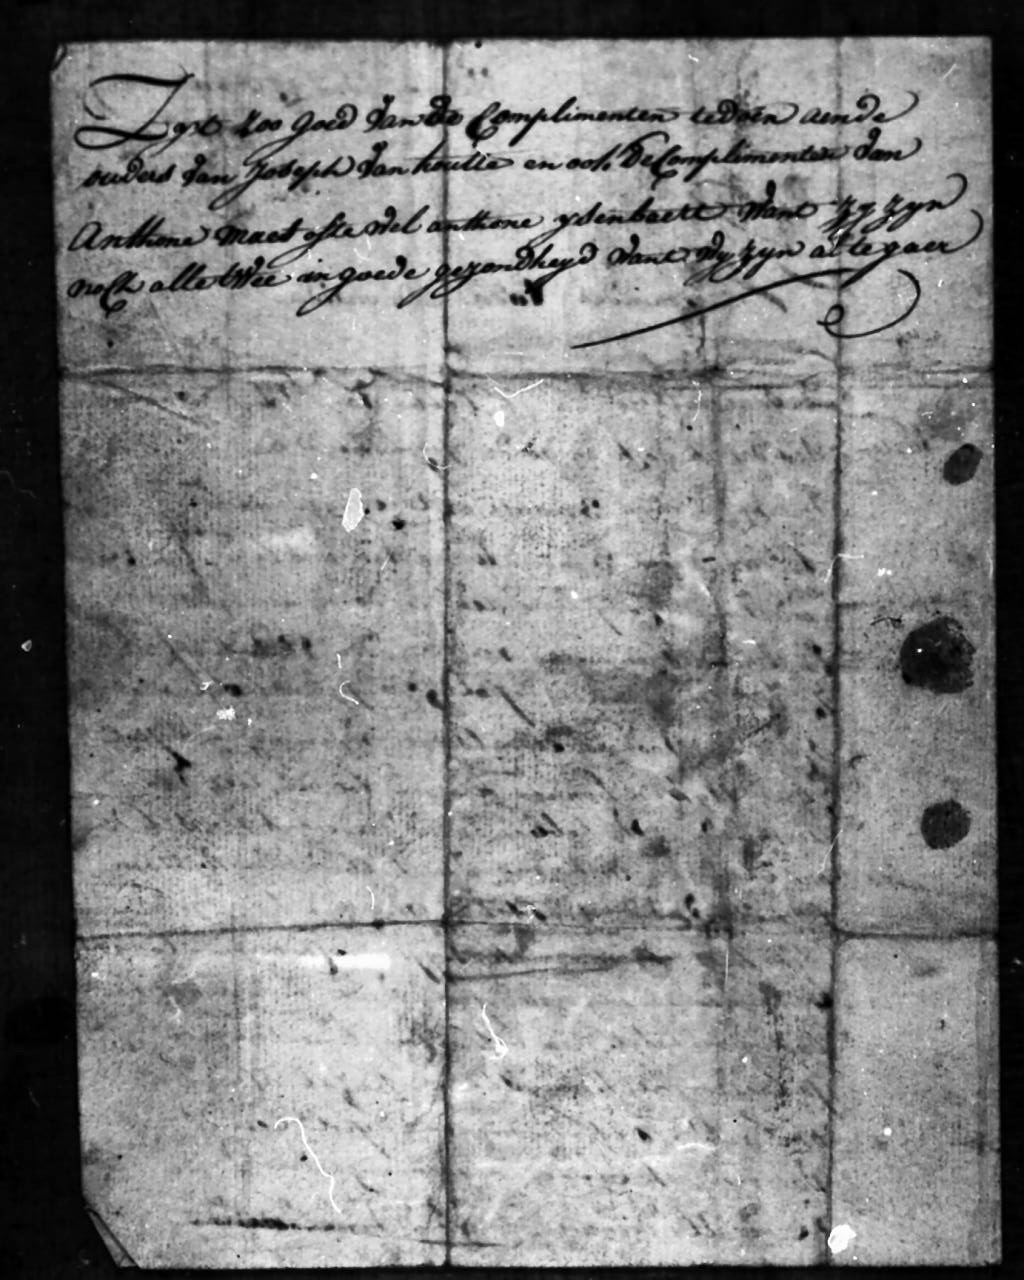 Zyt zoo goed van de Complimenten te doen aen de
ouders van Joseph Van houtte en ook De Complimenten van
Anthone maes ofte wel anthone ysenbaert want zy zyn
noch alle twee in goede gezondheyd want wy zyn al te gaer